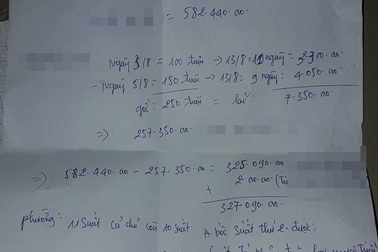 = 582.440.00
Ngày 3/8 = 100 triệu → 13/8 = 11 ngày = 3300.00
- Ngày 5/8 = 150 triệu → 13/8 = 9 ngày = 4.050.00
gốc: 250 triệu = lãi 7.350.00
=> 257.350.00
=> 582.440.00 - 257.350.00 = 325.090.00
+ 2.000.00 (
327.090.00
phường: 11 suất cả chủ còn 10 suất. A bốc suất thứ 2 được: